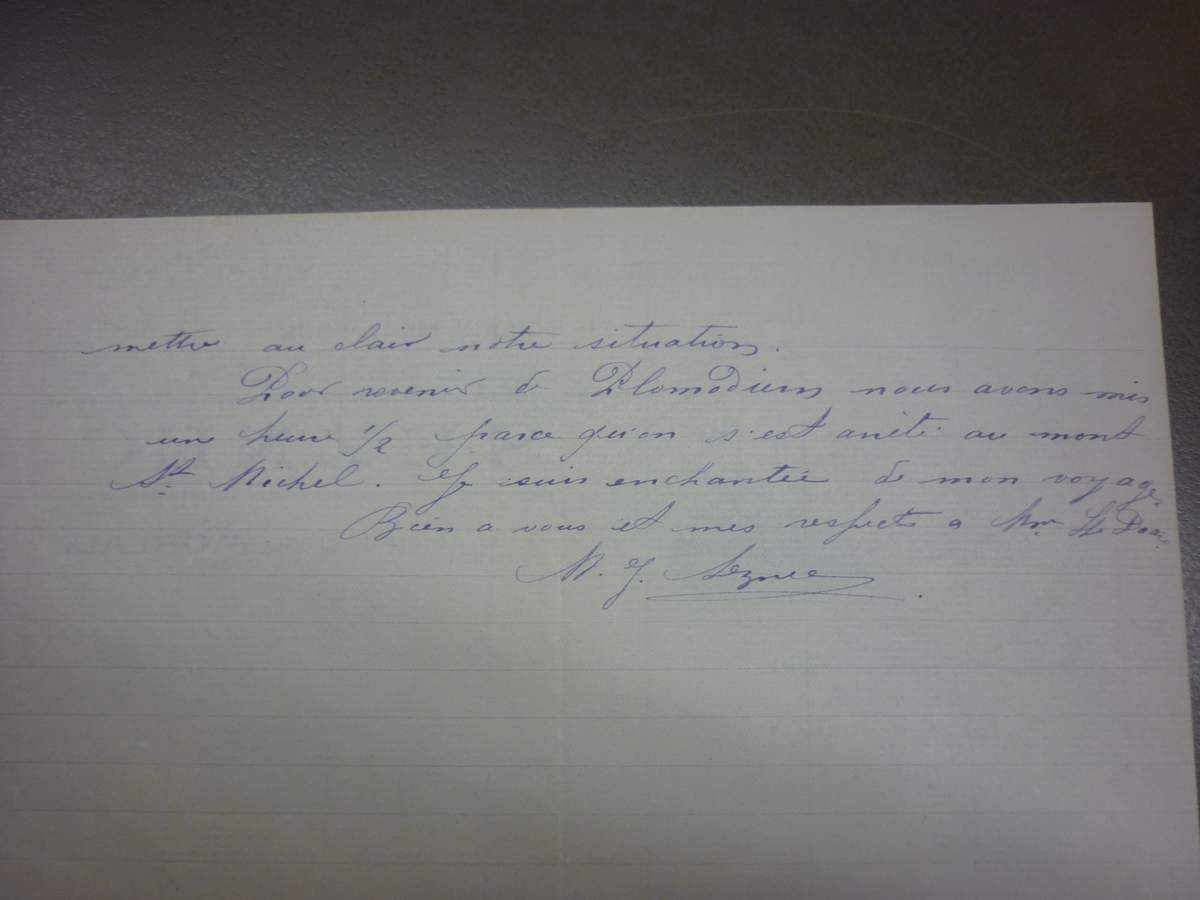 mettre au clair notre situation.
Pour revenir de Plomodiern nous avons mis
une heure 1/2 parce qu'on s'est arrêté au mont
St Michel. Je suis enchantée de mon voyage.
Bien a vous et mes respects a Mr Le
M. J. Seznec